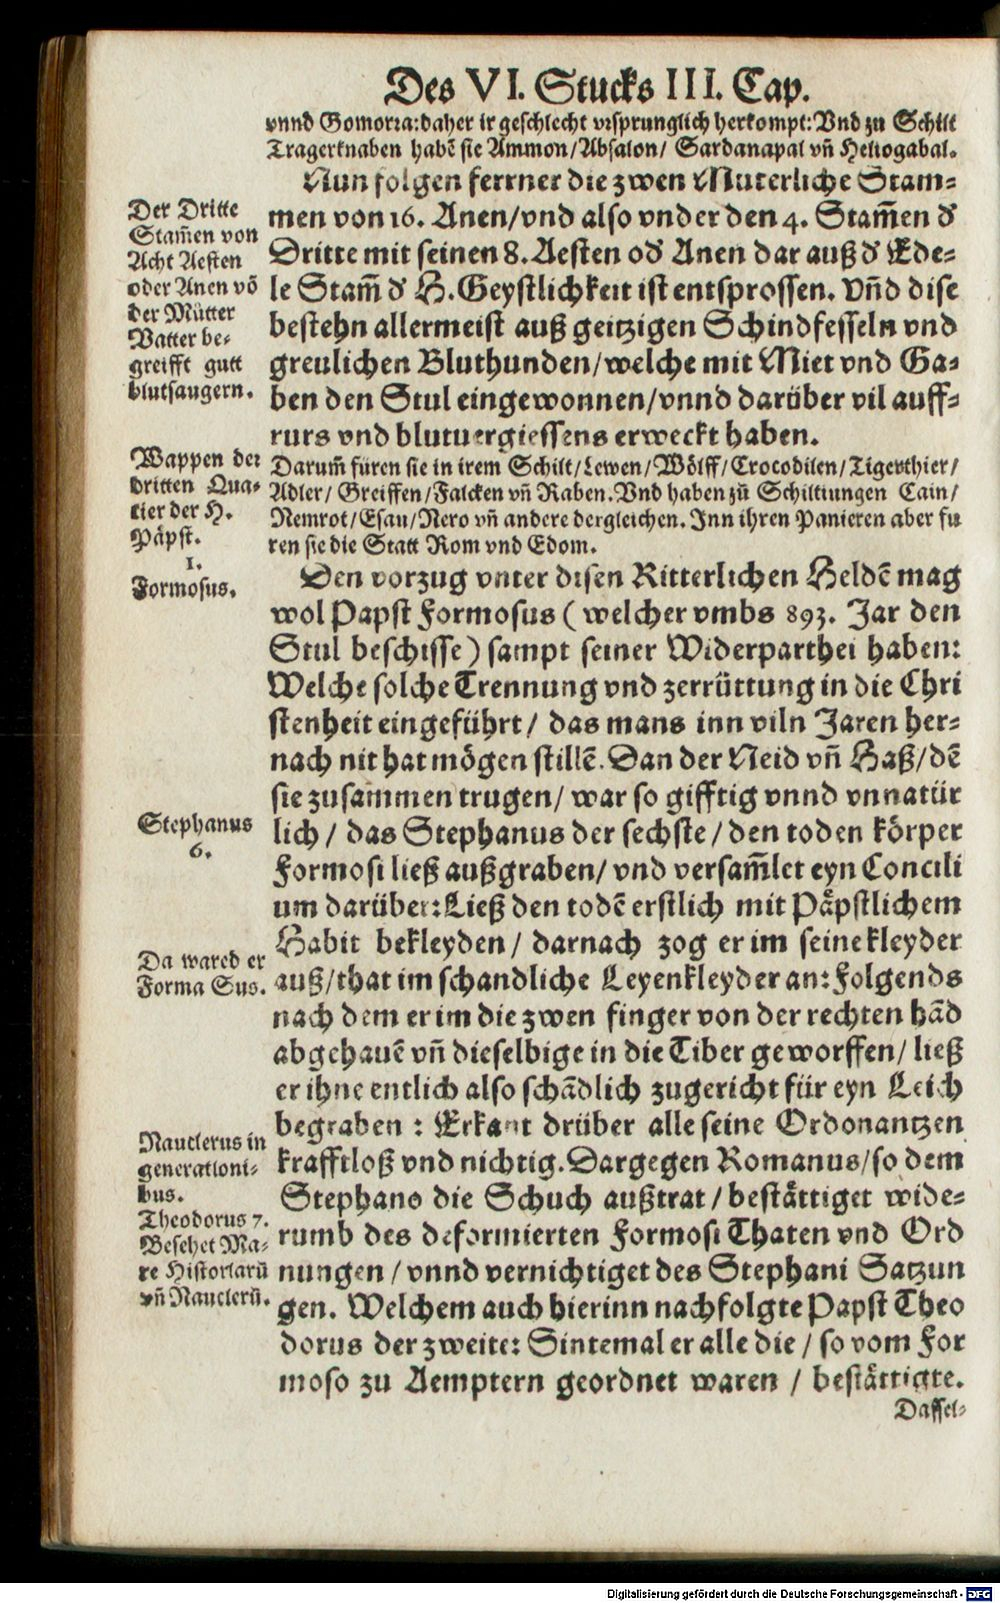 Des VI. Stucks III. Cap.
vnnd Gomorra: daher ir geschlecht vrsprunglich herkompt: Vnd zu Schilt
Tragerknaben habē sie Ammon/ Absalon/ Sardanapal vñ Heliogabal.
Nun folgen ferrner die zwen Muterliche Stam=
men von 16. Anen/ vnd also vnder den 4. Stam̄en d'
Dritte mit seinen 8. Aesten od' Anen dar auß d' Ede=
le Stam̄ d' H. Geystlichkeit ist entsprossen. Vñd dise
bestehn allermeist auß geitzigen Schindfesseln vnd
greulichen Bluthunden/ welche mit Miet vnd Ga=
ben den Stul eingewonnen/ vnnd darüber vil auff=
rurs vnd blutuergiessens erweckt haben.
Darum̄ füren sie in irem Schilt/ Lewen/ Wölff/ Crocodilen/ Tigerthier/
Adler/ Greiffen/ Falcken vñ Raben. Vnd haben zů Schiltiungen Cain/
Nemrot/ Esau/ Nero vñ andere dergleichen. Inn ihren Panieren aber fu
ren sie die Statt Rom vnd Edom.
Den vorzug vnter disen Ritterlichen Heldē mag
wol Papst Formosus ( welcher vmbs 893. Jar den
Stul beschisse ) sampt seiner Widerparthei haben:
Welche solche Trennung vnd zerrüttung in die Chri
stenheit eingeführt/ das mans inn viln Jaren her=
nach nit hat mögen stillē. Dan der Neid vñ Haß/ dē
sie zusammen trugen/ war so gifftig vnnd vnnatür
lich / das Stephanus der sechste/ den toden körper
Formosi ließ außgraben/ vnd versam̄let eyn Concili
um darüber: Ließ den todē erstlich mit Påpstlichem
Habit bekleyden/ darnach zog er im seine kleyder
auß/ that im schandliche Leyenkleyder an: Folgends
nach dem er im die zwen finger von der rechten hād
abgehauē vñ dieselbige in die Tiber geworffen/ ließ
er ihne entlich also schādlich zugericht für eyn Leich
begraben : Erkant drüber alle seine Ordonantzen
krafftloß vnd nichtig. Dargegen Romanus/ so dem
Stephano die Schuch außtrat/ bestättiget wide=
rumb des deformierten Formosi Thaten vnd Ord
nungen/ vnnd vernichtiget des Stephani Satzun
gen. Welchem auch hierinn nachfolgte Papst Theo
dorus der zweite: Sintemal er alle die/ so vom For
moso zu Aemptern geordnet waren / bestättigte.
Dassel=
Der Dritte
Stam̄en von
Acht Aesten
oder Anen vō
der Mütter
Vatter be=
greifft gutt
blutsaugern.
Wappen der
dritten Qua=
tier der H.
Påpst.
1.
Formosus.
Stephanus
6.
Da wared er
Forma Sus.
Nauclerus in
generationi=
bus.
Theodorus 7.
Besehet Ma=
re Historiarū
vñ Nauclerū.
Digitalisierung gefördert durch die Deutsche Forschungsgemeinschaft - DFG